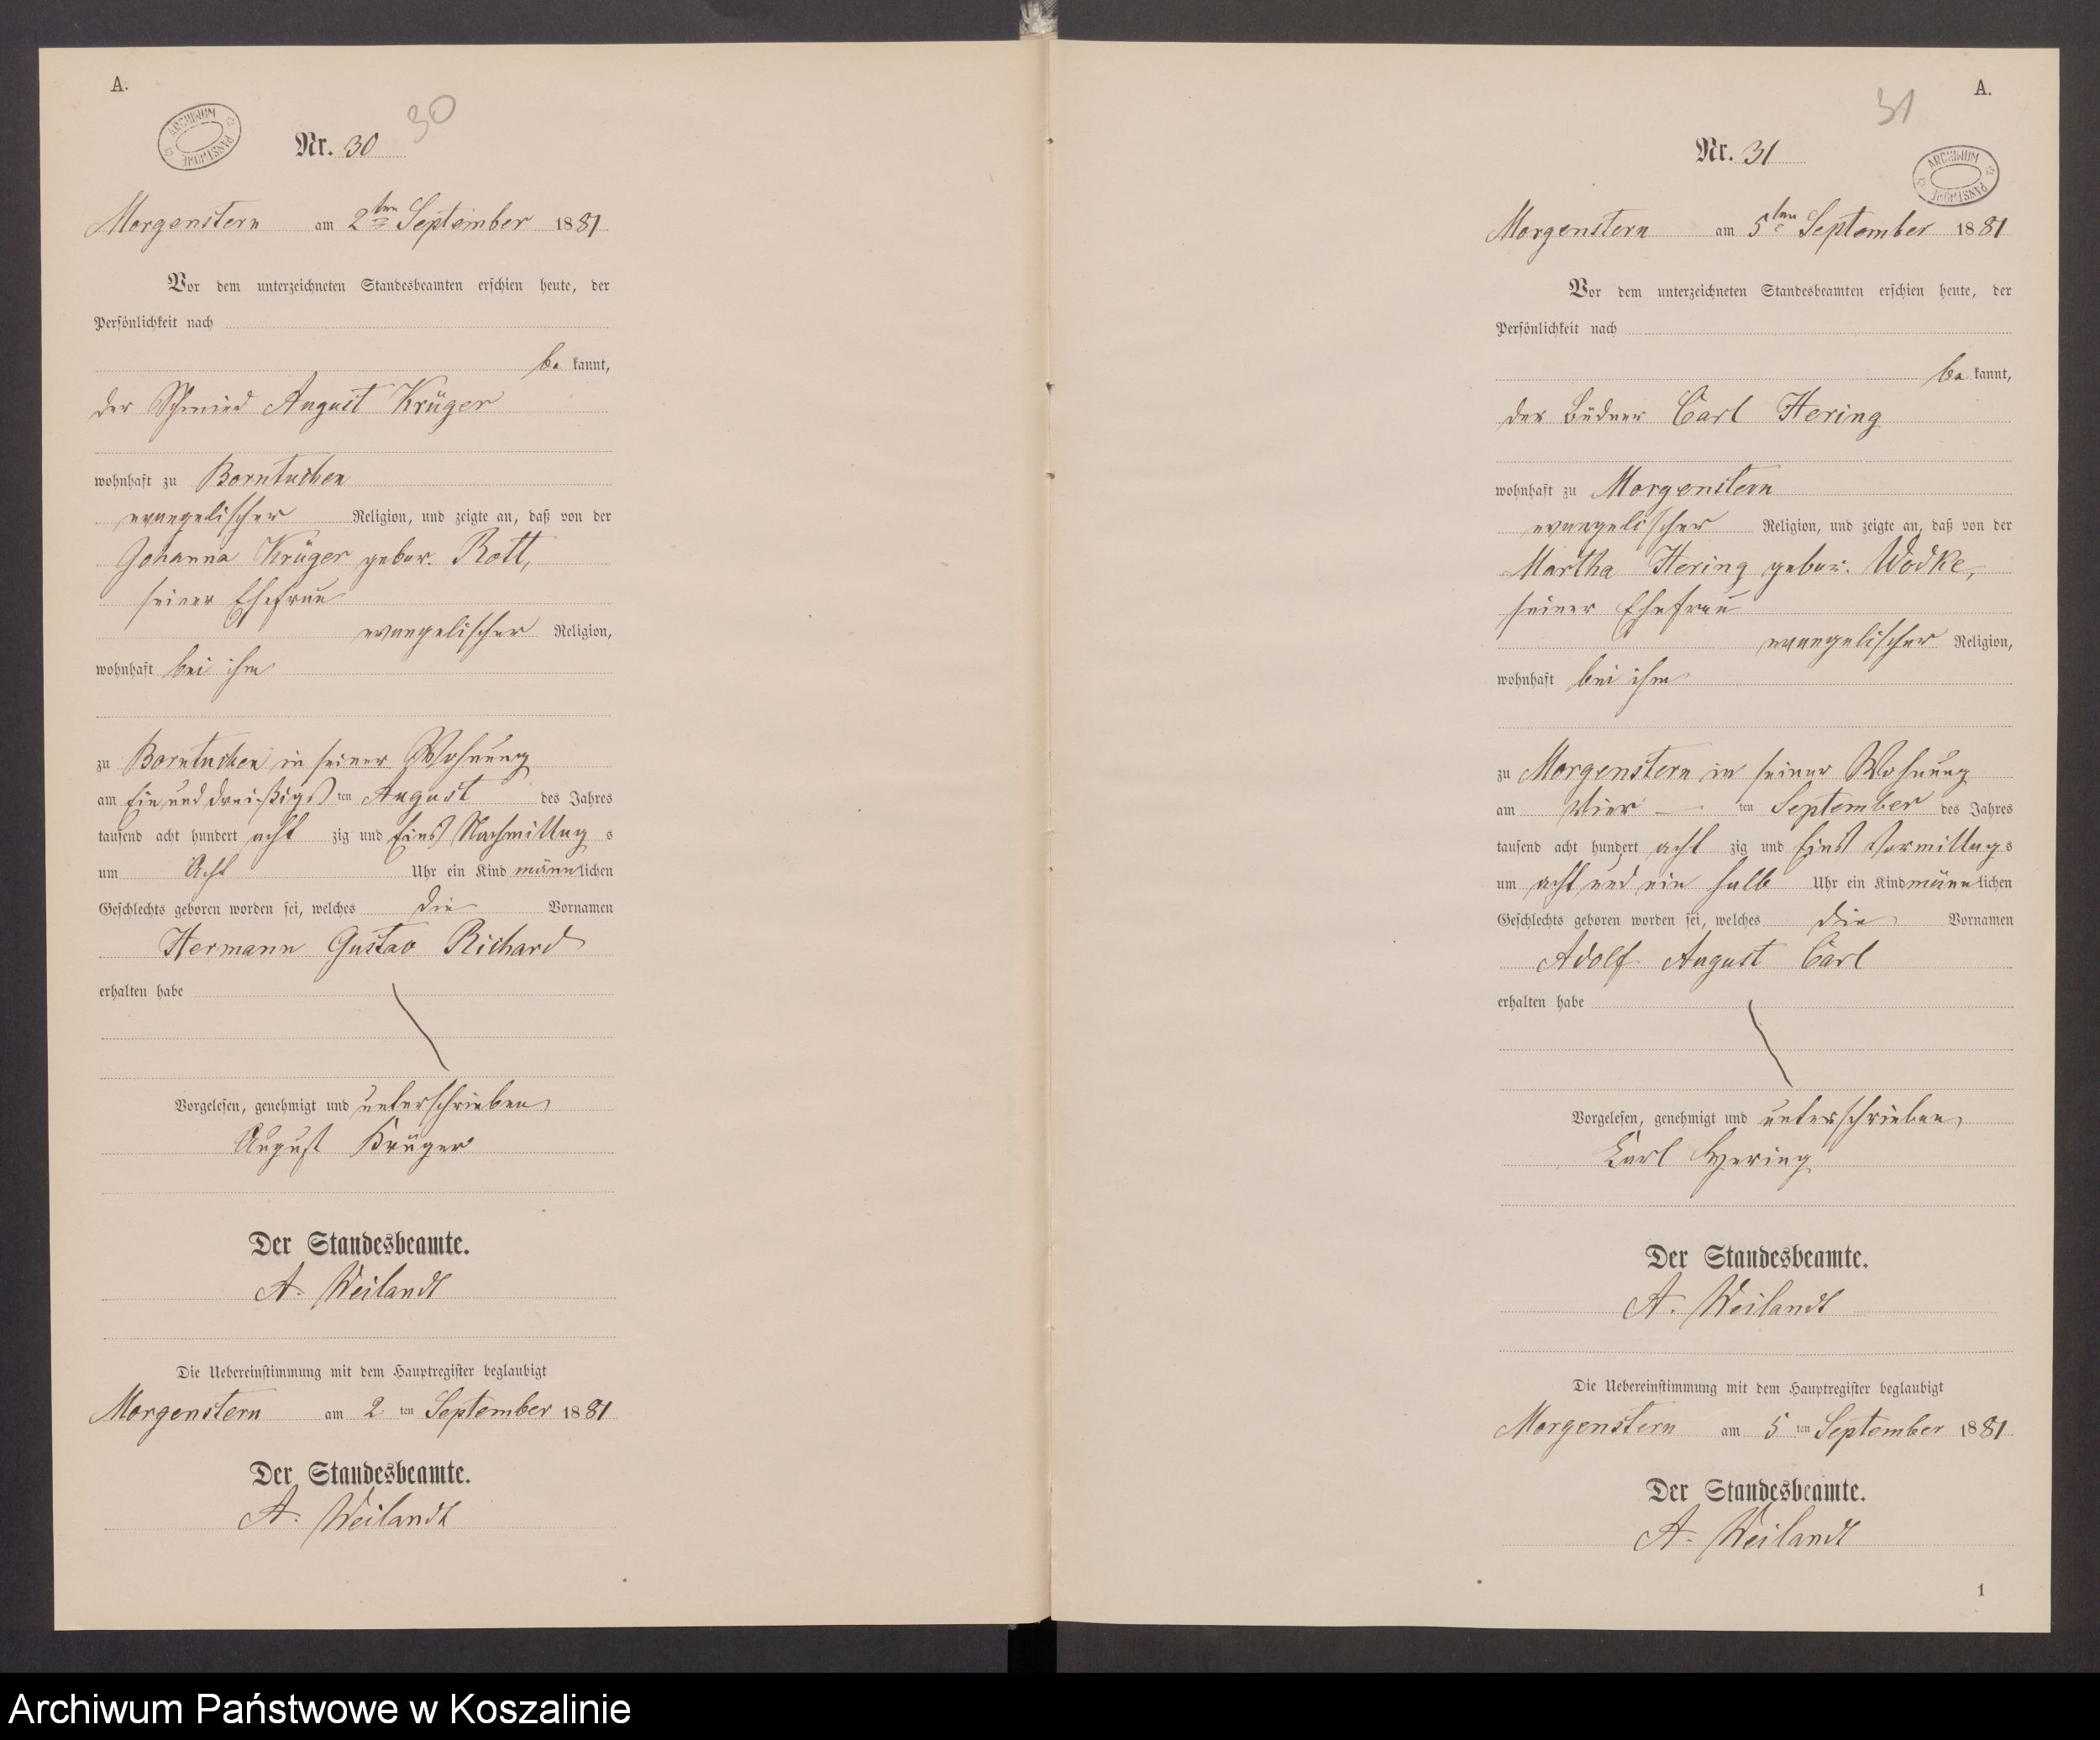 A.
ARCHIWUM PAŃSTWOWE
30
Nr. 30
Morgenstern am 2ten September 1881
Vor dem unterzeichneten Standesbeamten erschien heute, der
Persönlichkeit nach
be kannt,
der Schmied August Krüger
wohnhaft zu Borntuchen
evangelischer Religion, und zeigte an, daß von der
Johanna Krüger gebor. Rott,
seiner Ehefrau
evangelischer Religion,
wohnhaft bei ihm
zu Borntuchen in seiner Wohnung
am Ein und dreißigst ten August des Jahres
tausend acht hundert acht zig und Eins Nachmittag s
um Acht Uhr ein Kind männlichen
Geschlechts geboren worden sei, welches die Vornamen
Hermann Gustav Richard
erhalten habe
Vorgelesen, genehmigt und unterschrieben
August Krüger
Der Standesbeamte.
A. Weilandt
Die Uebereinstimmung mit dem Hauptregister beglaubigt
Morgenstern am 2 ten September 1881
Der Standesbeamte.
A. Weilandt
A.
31
Nr. 31
ARCHIWUM PAŃSTWOWE
Morgenstern am 5ten September 1881
Vor dem unterzeichneten Standesbeamten erschien heute, der
Persönlichkeit nach
be kannt,
der Büdner Carl Hering
wohnhaft zu Morgenstern
evangelischer Religion, und zeigte an, daß von der
Martha Hering gebor. Wodke,
seiner Ehefrau
evangelischer Religion,
wohnhaft bei ihm
zu Morgenstern in seiner Wohnung
am Vier — ten September des Jahres
tausend acht hundert acht zig und Eins Vormittag s
um acht und ein halb Uhr ein Kind männlichen
Geschlechts geboren worden sei, welches die Vornamen
Adolf August Carl
erhalten habe
Vorgelesen, genehmigt und unterschrieben
Carl Hering
Der Standesbeamte.
A. Weilandt
Die Uebereinstimmung mit dem Hauptregister beglaubigt
Morgenstern am 5 ten September 1881
Der Standesbeamte.
A. Weilandt
1
Archiwum Państwowe w Koszalinie